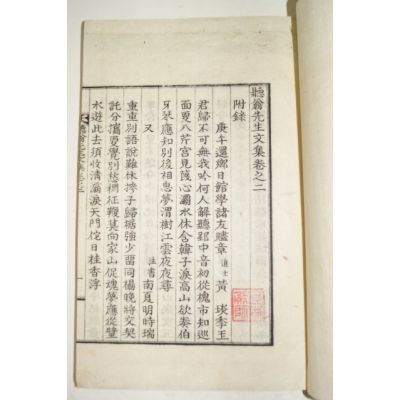 聽翁先生文集卷之二
附錄
庚午還鄉日館學諸友贐章 進士 黃 琰 季玉
君歸不可無我吟何人解聽郢中音初從槐市知巡
面更八芹宮見篋心灞水休含韓子淚高山欲奏伯
牙琴應知別後相思夢渭樹江雲夜夜尋
又 南夏明時瑞
重重別語說難休摻子歸橅強少留同榻晚將交契
託分攜更覺別愁稠征鞭莫向家山促魂夢應從璧
水遊此去須收淸淚天門佗日桂香浮